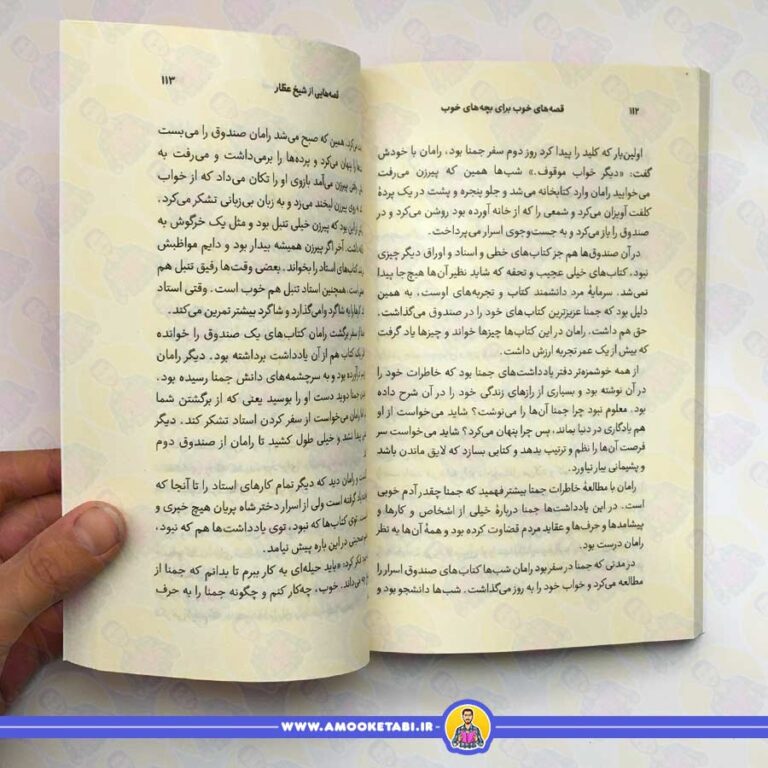 ۱۱۲
قصه‌های خوب برای بچه‌های خوب
اولین‌بار که کلید را پیدا کرد روز دوم سفر جمنا بود، رامان با خودش
گفت: «دیگر خواب موقوف.» شب‌ها همین که پیرزن می‌رفت
می‌خوابید رامان وارد کتابخانه می‌شد و جلو پنجره و پشت در یک پردهٔ
کلفت آویزان می‌کرد و شمعی را که از خانه آورده بود روشن می‌کرد و در
صندوق را باز می‌کرد و به جست‌وجوی اسرار می‌پرداخت.
در آن صندوق‌ها هم جز کتاب‌های خطی و اسناد و اوراق دیگر چیزی
نبود، کتاب‌های خیلی عجیب و تحفه که شاید نظیر آن‌ها هیچ‌جا پیدا
نمی‌شد. سرمایهٔ مرد دانشمند کتاب و تجربه‌های اوست، به همین
دلیل بود که جمنا عزیزترین کتاب‌های خود را در صندوق می‌گذاشت.
حق هم داشت. رامان در این کتاب‌ها چیزها خواند و چیزها یاد گرفت
که بیش از یک عمر تجربه ارزش داشت.
از همه خوشمزه‌تر دفتر یادداشت‌های جمنا بود که خاطرات خود را
در آن نوشته بود و بسیاری از رازهای زندگی خود را در آن شرح داده
بود. معلوم نبود چرا جمنا آن‌ها را می‌نوشت؟ شاید می‌خواست از او
هم یادگاری در دنیا بماند، پس چرا پنهان می‌کرد؟ شاید می‌خواست سر
فرصت آن‌ها را نظم و ترتیب بدهد و کتابی بسازد که لایق ماندن باشد
و پشیمانی ببار نیاورد.
رامان با مطالعهٔ خاطرات جمنا بیشتر فهمید که جمنا چقدر آدم خوبی
است. در این یادداشت‌ها جمنا دربارهٔ خیلی از اشخاص و کارها و
پیشامدها و حرف‌ها و عقاید مردم قضاوت کرده بود و همهٔ آن‌ها به نظر
رامان درست بود.
در مدتی که جمنا در سفر بود رامان شب‌ها کتاب‌های صندوق اسرار را
مطالعه می‌کرد و خواب خود را به روز می‌گذاشت. شب‌ها دانشجو بود و
قصه‌هایی از شیخ عطار
۱۱۳
همین که صبح می‌شد رامان صندوق را می‌بست
را پنهان می‌کرد و پرده‌ها را برمی‌داشت و می‌رفت به
پیرزن می‌آمد بازوی او را تکان می‌داد که از خواب
به روی پیرزن لبخند می‌زد و به زبان بی‌زبانی تشکر می‌کرد.
این بود که پیرزن خیلی تنبل بود و مثل یک خرگوش به
داشت. آخر اگر پیرزن همیشه بیدار بود و دایم مواظبش
کتاب‌های استاد را بخواند. بعضی وقت‌ها رفیق تنبل هم
است. همچنین استاد تنبل هم خوب است. وقتی استاد
را به شاگرد وامی‌گذارد و شاگرد بیشتر تمرین می‌کند.
از سفر برگشت رامان کتاب‌های یک صندوق را خوانده
یک کتاب هم از آن یادداشت برداشته بود. دیگر رامان
بود و به سرچشمه‌های دانش جمنا رسیده بود.
جمنا دوید دست او را بوسید یعنی که از برگشتن شما
رامان می‌خواست از سفر کردن استاد تشکر کند. دیگر
پیدا نشد و خیلی طول کشید تا رامان از صندوق دوم
و رامان دید که دیگر تمام کارهای استاد را تا آنجا که
گرفته است ولی از اسرار دختر شاه پریان هیچ خبری و
توی کتاب‌ها که نبود، توی یادداشت‌ها هم که نبود،
در این باره پیش نیامد.
فکر کرد: «باید حیله‌ای به کار ببرم تا بدانم که جمنا از
می‌داند. خوب، چه‌کار کنم و چگونه جمنا را به حرف
WWW.AMOOKETABI.IR